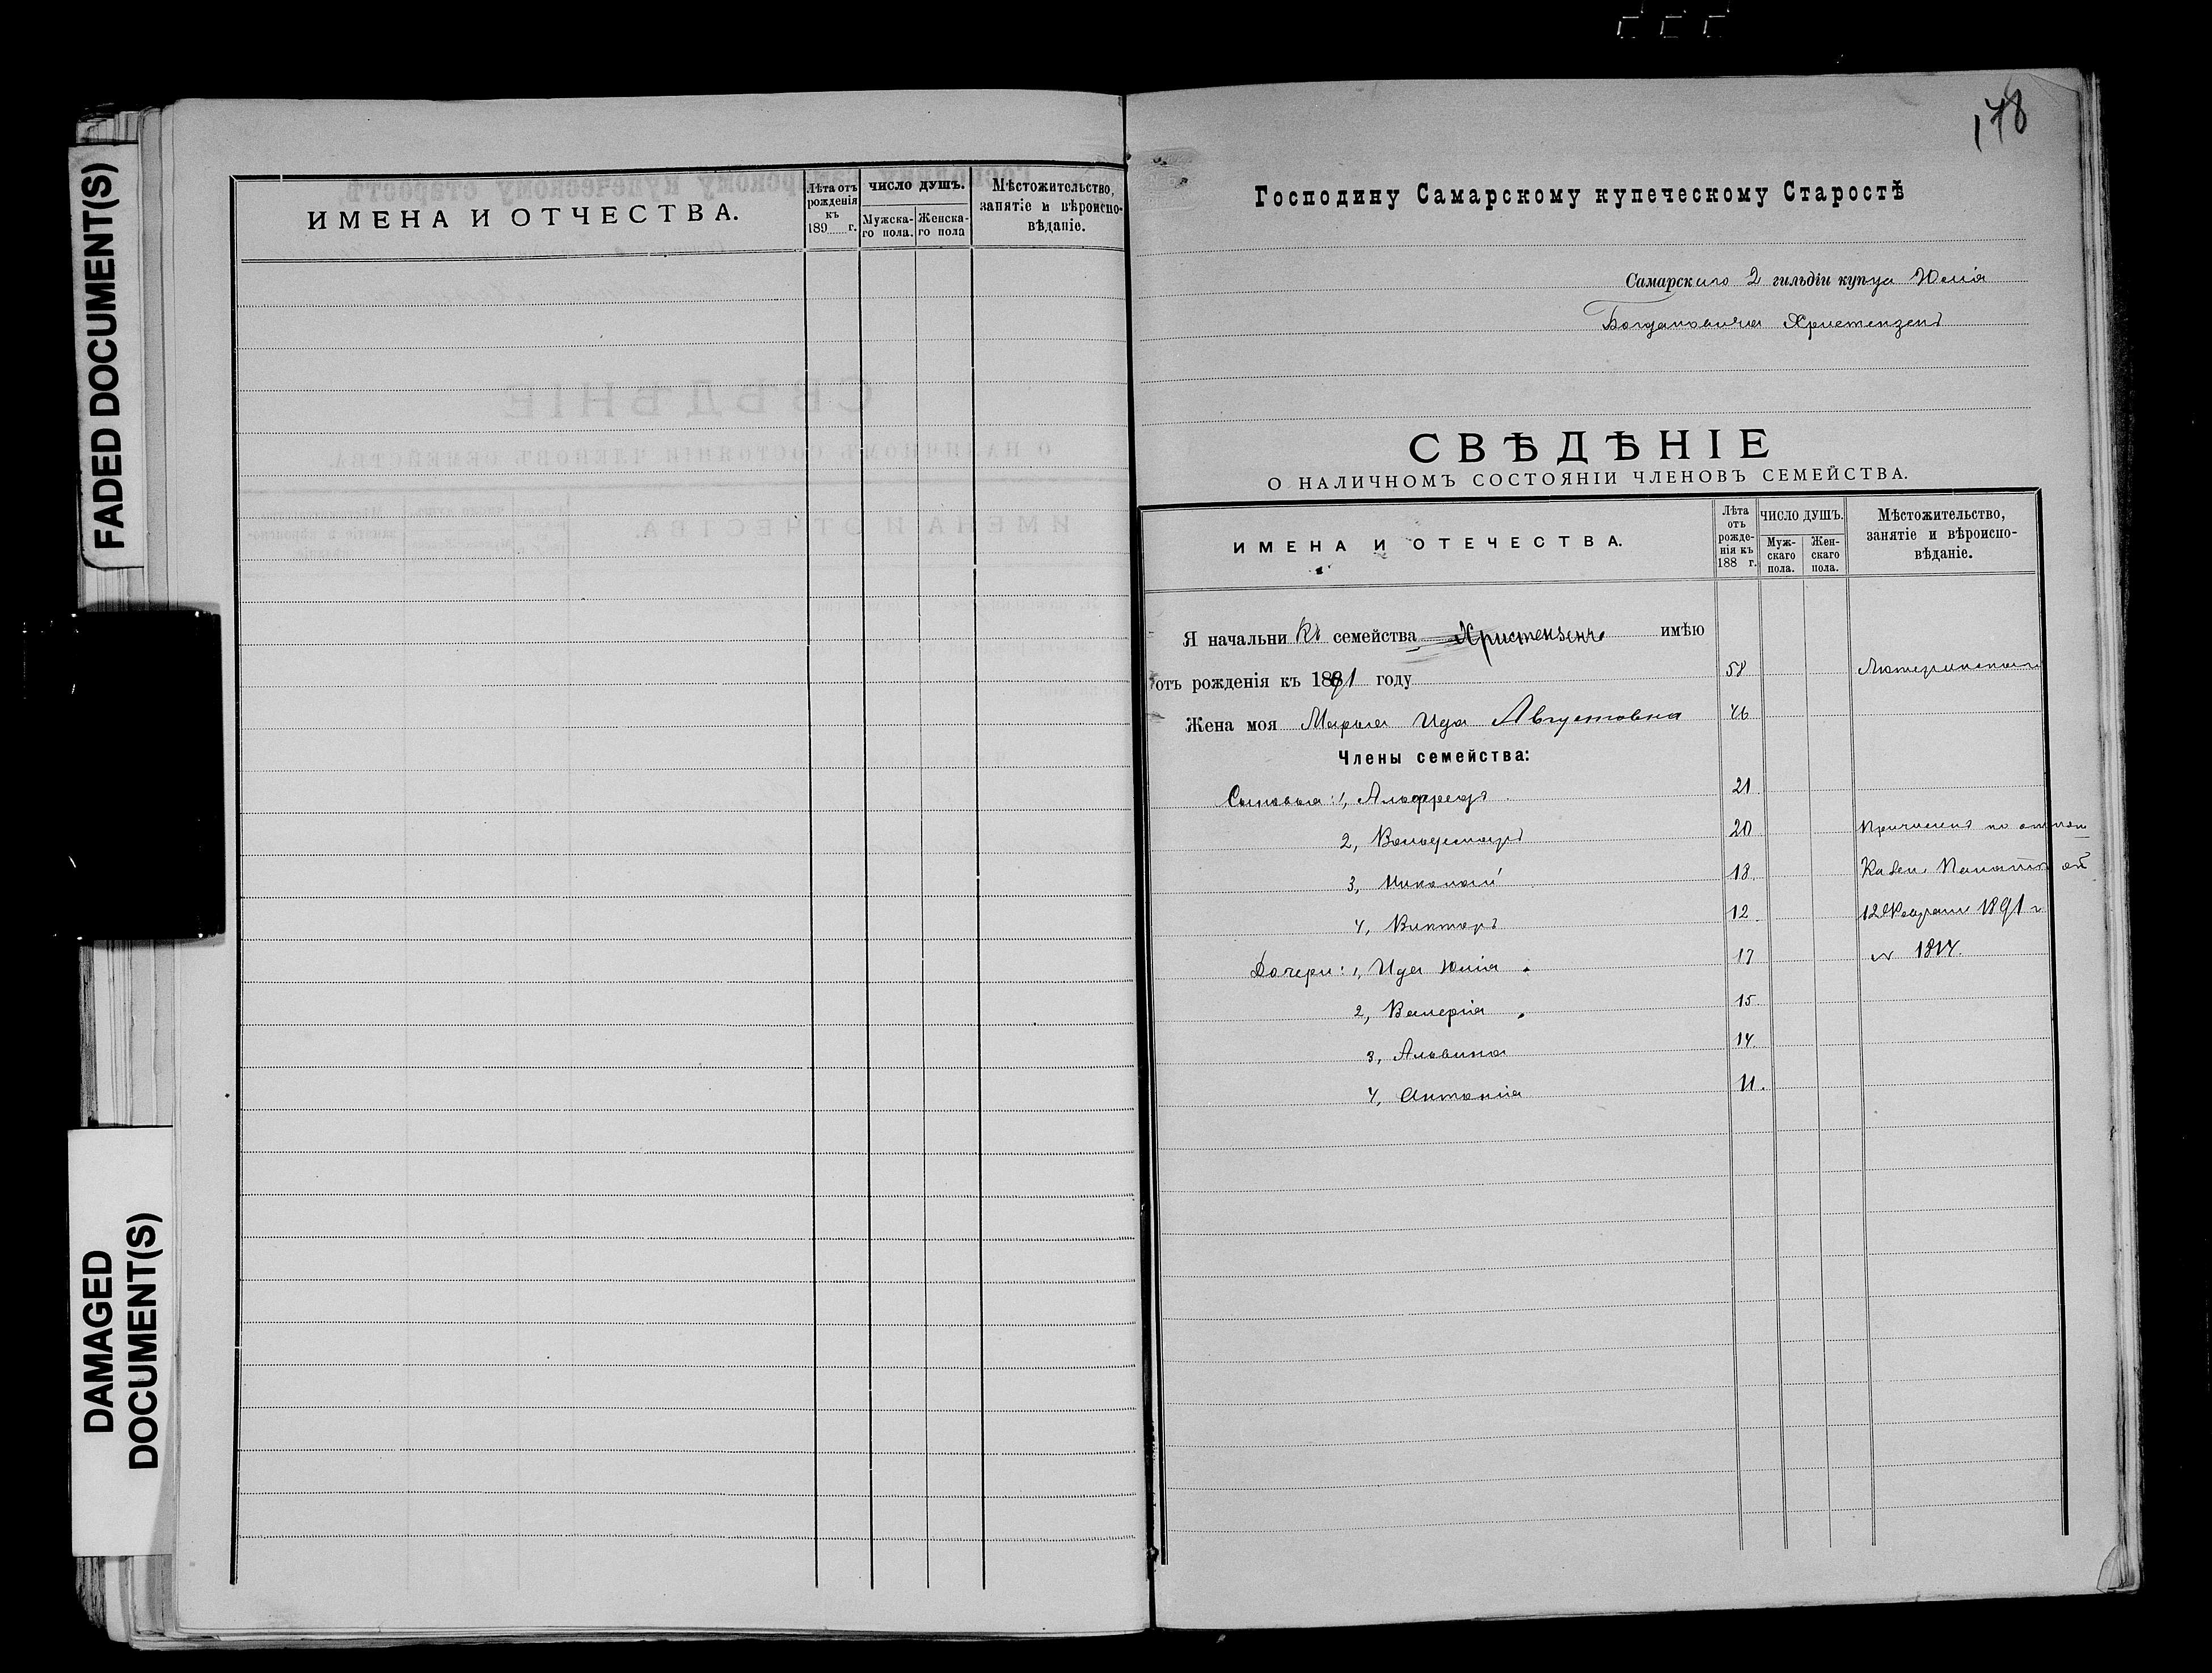 FADED DOCUMENT(S)
DAMAGED
DOCUMENT(S)
ИМЕНА И ОТЧЕСТВА.
Лѣта отъ
рожденія
къ
189 г.
ЧИСЛО ДУШЪ.
Мужска-
го пола.
Женска-
го пола
Мѣстожительство,
занятіе и вѣроиспо-
вѣданіе.
178
Господину Самарскому купеческому Старостѣ
Самарскаго 2 гильдіи купца Юлія
Богдановича Христензенъ
СВѢДѢНІЕ
О НАЛИЧНОМЪ СОСТОЯНІИ ЧЛЕНОВЪ СЕМЕЙСТВА.
ИМЕНА И ОТЕЧЕСТВА.
Лѣта
отъ
рожде-
нія къ
188 г.
ЧИСЛО ДУШЪ.
Муж-
скаго
пола.
Жен-
скаго
пола.
Мѣстожительство,
занятіе и вѣроиспо-
вѣданіе.
Я начальникъ семейства Христензенъ имѣю
отъ рожденія къ 1891 году 58
Жена моя Марья Ида Августовна 46
Члены семейства:
Сыновья: 1, Альфредъ 21
2, Вольдемаръ 20 Причисленъ по
3, Николай 18. Казен. Палаты от
4, Викторъ 12. 12 Февраля 1891 г
Дочери: 1, Ида Юлія 17 № 1814.
2, Валерія 15
3, Альвина 14
4, Антонія 11.